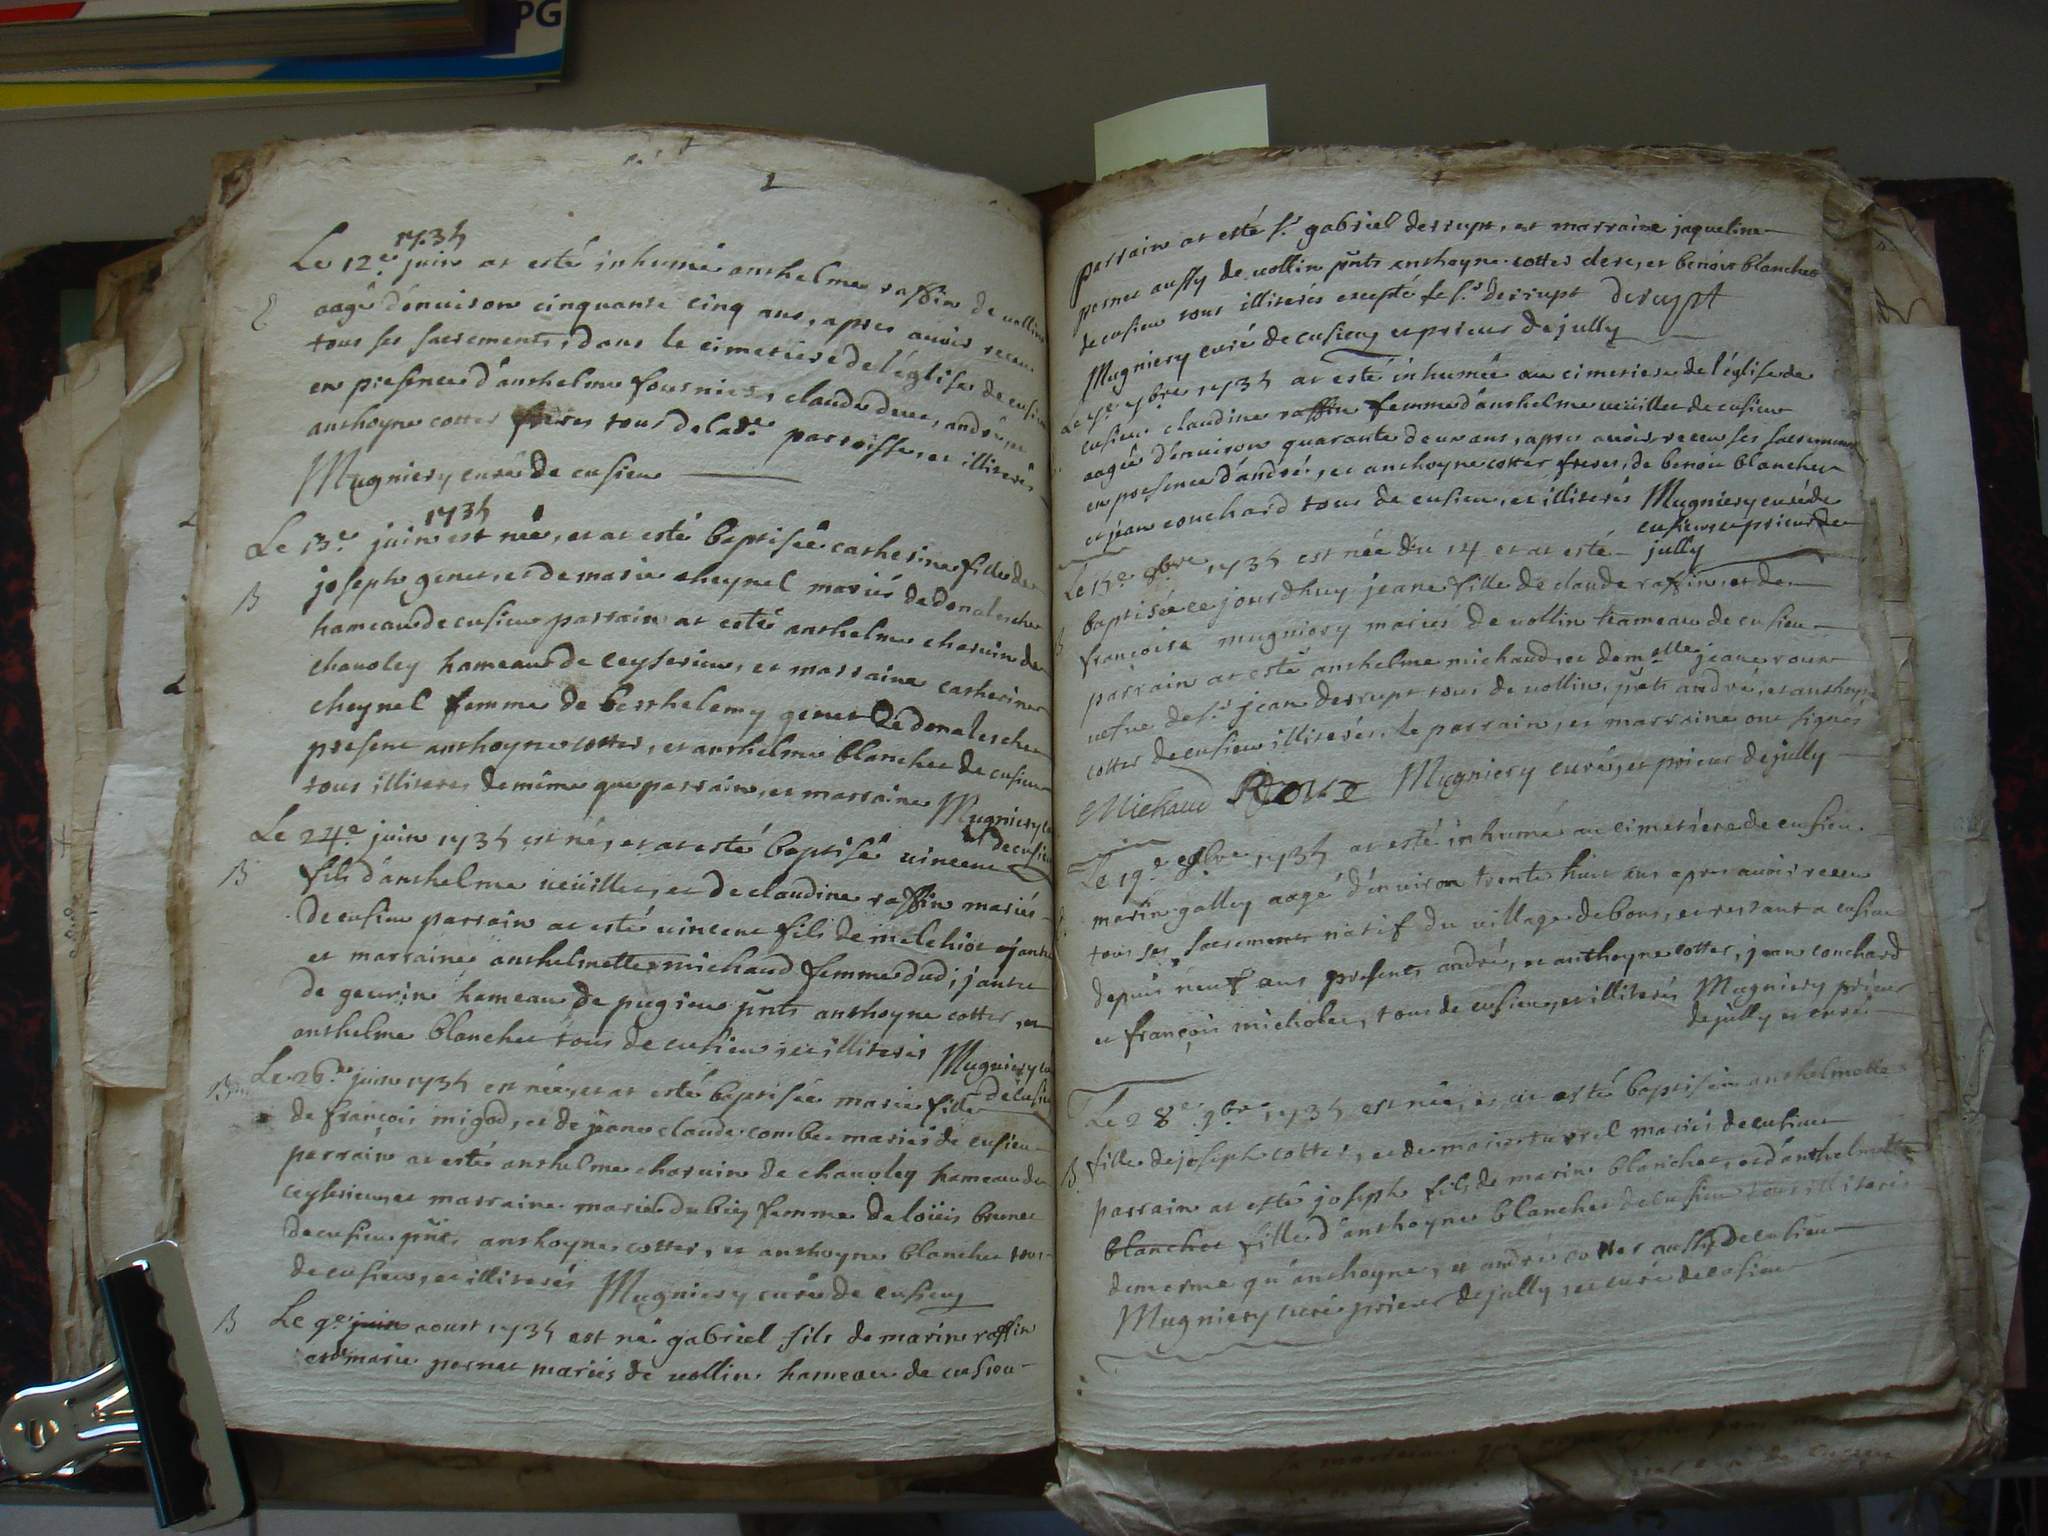 PG
1734
Le 12e juin at esté inhumé anthelme raffin de vollin
aagé d'environ cinquante cinq ans, apres avoir receu
tous ses sacrements, dans le cimetiere de l'église de cusieu
en presence d'anthelme fournier, claude dere, andré et
anthoyne cotter freres tous de lade parroisse, et illiterés
Mugniery curé de cusieu
1734
Le 13e juin est née, et at esté baptisée catherine fille de
B
joseph genet, et de marie cheynel mariés de donalesche
hameau de cusieu parrain at esté anthelme charvin de
chavoley hameau de ceyserieu, et marraine catherine
cheynel femme de berthelemy genet de donalesche
present anthoyne cotter, et anthelme blanchet de cusieu
tous illiteres de mème que parrain, et marraine Mugniery
de cusieu
Le 24e juin 1734 est né, et at esté baptisé vincent
B
fils d'anthelme veüillet, et de claudine raffin mariés
de cusieu parrain at esté vincent fils de melchiot jantet
et marraine anthelmette michaud femme dud: jantet
de gevrin hameau de pugieu pnts anthoyne cotter, et
anthelme blanchet tous de cusieu, et illiterés Mugniery
de cusieu
Le 26e juin 1734 est née, et at esté baptisée marie fille
de françois migod, et de jeane claude combe mariés de cusieu
parrain at esté anthelme charvin de chavoley hameau de
ceyserieu, et marraine marie dubiez femme de loüis brunet
de cusieu pnts anthoyne cotter, et anthoyne blanchet tous
de cusieu, et illiterés Mugniery curé de cusieu
B
Le 9e juin aoust 1734 est né gabriel fils de marin raffin
et de marie pernet mariés de vollin hameau de cusieu
parrain at esté sr gabriel derrupt, et marraine jaqueline
pernet aussy de vollin pnts anthoyne cotter clerc, et benoit blanchet
de cusieu tous illiterés excepté le sr derrupt derupt
Mugniery curé de cusieu et prieur de jully
7bre 1734 at esté inhumée au cimetiere de l'église de
cusieu claudine raffin femme d'anthelme veüillet de cusieu
aagée d'environ quarante deux ans, apres avoir receu ses sacrements
en presence d'andré, et anthoyne cotter freres, de benoit blanchet
et jean couchard tous de cusieu, et illiterés Mugniery curé de
cusieu, et prieur de
jully
Le 15e 8bre 1734 est née du 14 et at esté
baptisée ce jourdhuy jeane fille de claude raffin, et de
B
françoise mugniery mariés de vollin hameau de cusieu
parrain at esté anthelme michaud, et demelle jeane roux
vefve de sr jean derrupt tous de vollin, pnts andré, et anthoyne
cotter de cusieu illiterés, le parrain, et marraine ont signés
Michaud Roux Mugniery curé, et prieur de jully
Le 19e 8bre 1734 at esté inhumé au cimetiere de cusieu
marin galley aagé d'environ trente huit ans apres avoir receu
tous ses sacrements natif du village de bons, et restant a cusieu
depuis neuf ans presents andré, et anthoyne cotter, jean couchard
et françois micholet, tous de cusieu, et illiterés Mugniery prieur
de jully et curé
Le 28e 9bre 1734 est née, et at esté baptisée anthelmette
B
fille de joseph cotter, et de marie turrel mariés de cusieu
parrain at esté joseph fils de marin blanchet, et d'anthelmette
blanchet fille d'anthoyne blanchet de cusieu tous illiterés
de mesme qu'anthoyne, et andré cotter aussy de cusieu
Mugniery curé prieur de jully, et curé de cusieu